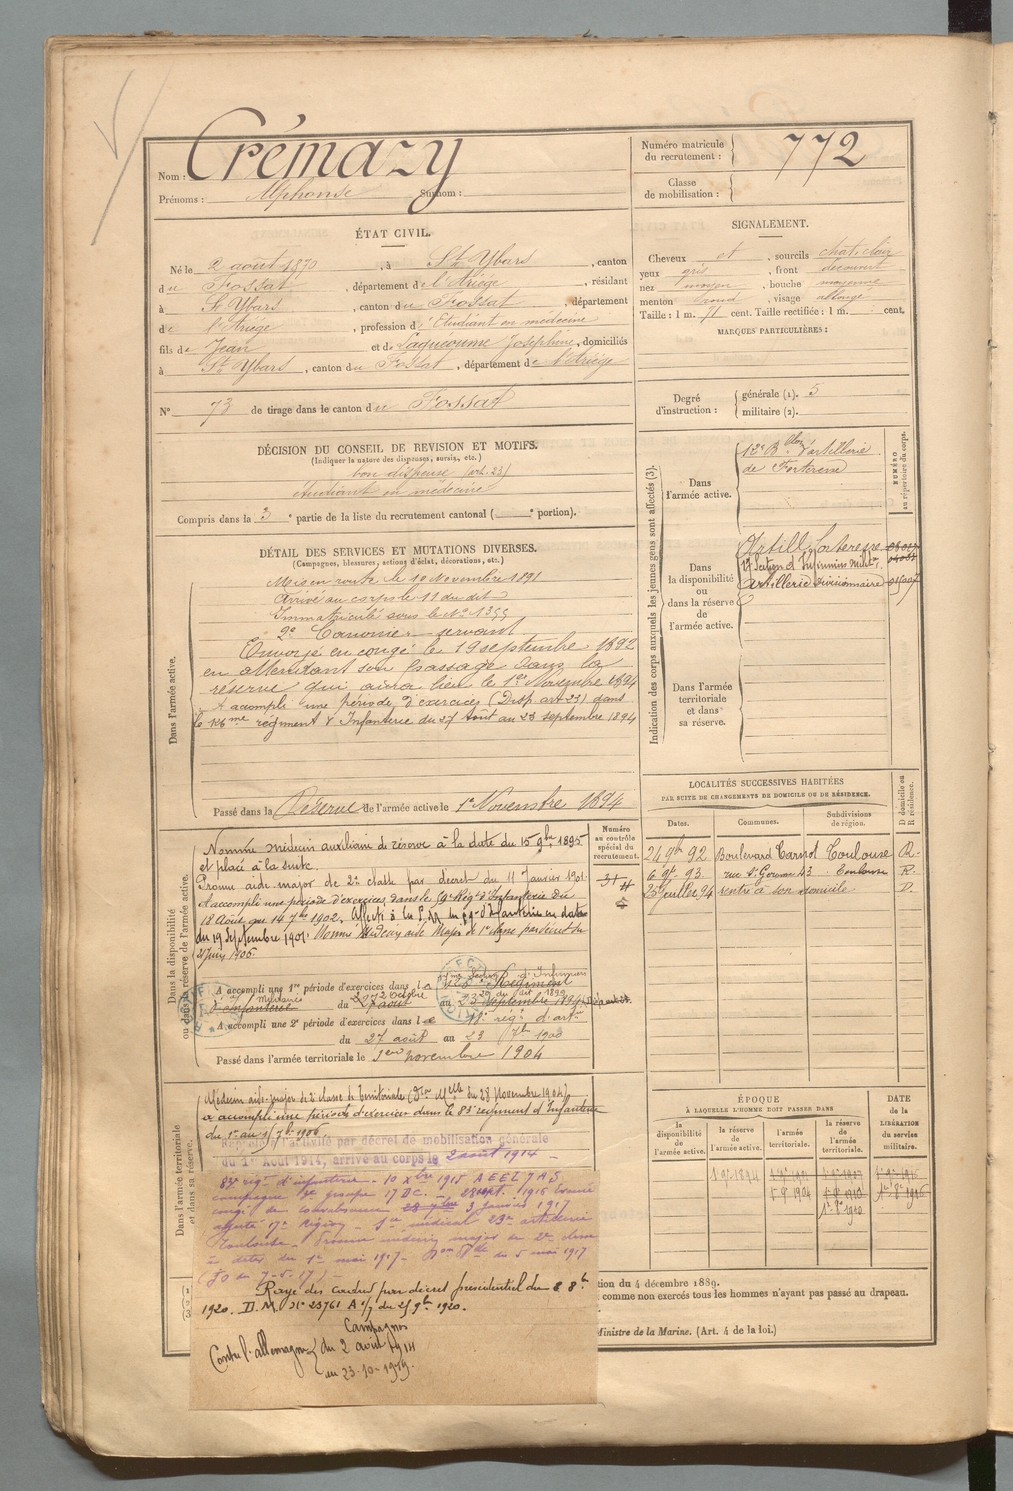 Nom : Crémazy
Prénoms : Alphonse Surnom :
Numéro matricule du recrutement : 772
Classe de mobilisation :
ÉTAT CIVIL.
Né le 2 août 1870, à St Ybars, canton
du Fossat, département de l'Ariège, résidant
à St Ybars, canton du Fossat, département
de l'Ariège, profession d'Etudiant en médecine
fils de Jean et de Laqueoume Joséphine, domiciliés
à St Ybars, canton du Fossat, département de l'Ariège
N° 73 de tirage dans le canton du Fossat
SIGNALEMENT.
Cheveux et, sourcils chat. clair
yeux gris, front découvert
nez moyen, bouche moyenne
menton rond, visage allongé
Taille : 1 m. 71 cent. Taille rectifiée : 1 m. cent.
MARQUES PARTICULIÈRES :
Degré d'instruction : générale (1). 5
militaire (2).
DÉCISION DU CONSEIL DE REVISION ET MOTIFS.
(Indiquer la nature des dispenses, sursis, etc.)
bon dispensé (art. 23)
étudiant en médecine
Compris dans la 3e partie de la liste du recrutement cantonal ( e portion).
DÉTAIL DES SERVICES ET MUTATIONS DIVERSES.
(Campagnes, blessures, actions d'éclat, décorations, etc.)
Dans l'armée active.
Mis en route le 10 Novembre 1891
Arrivé au corps le 11 du dit
Immatriculé sous le N° 1355
2e Canonnier servant
Envoyé en congé le 19 septembre 1892
en attendant son passage dans la
réserve qui aura lieu le 1er Novembre 1894
A accompli une période d'exercices (Disp. art 23) dans
le 126me régiment d'Infanterie du 27 Août au 23 septembre 1894
Passé dans la Réserve de l'armée active le 1er Novembre 1894
Indication des corps auxquels les jeunes gens sont affectés (3).
NUMÉRO au répertoire du corps.
Dans l'armée active.
12e Bon d'artillerie
de Forteresse
Dans la disponibilité ou dans la réserve de l'armée active.
Artillie forteresse
17 Section d'Infirmiers milit.
Artillerie Divisionnaire
Dans l'armée territoriale et dans sa réserve.
LOCALITÉS SUCCESSIVES HABITÉES
PAR SUITE DE CHANGEMENTS DE DOMICILE OU DE RÉSIDENCE.
Dates. Communes. Subdivisions de région. D domicile ou R résidence.
24 9bre 92 Boulevard Carnot Toulouse R.
6 9bre 93 rue St Germer 43 Toulouse R.
25 juillet 94 rentré à son domicile D.
Dans la disponibilité ou dans la réserve de l'armée active.
Numéro au contrôle spécial du recrutement.
Nommé médecin auxiliaire de réserve à la date du 15 9bre 1895
et placé à la suite.
Promu aide major de 2e classe par décret du 11 Janvier 1901.
A accompli une période d'exercices dans le 59e Rég. d'Infanterie du
18 Août au 14 7bre 1902. Affecté à la P. M. du 59e d'Infanterie en date
du 19 Septembre 1901. Nommé Médecin aide Major de 1e classe par décret du
A accompli une 1re période d'exercices dans le Régiment
d'infanterie du 27 août au 23 septembre 1894
A accompli une 2e période d'exercices dans le régt d'artie
du 27 août au 23 7bre 1900
Passé dans l'armée territoriale le 1er novembre 1904
Dans l'armée territoriale et dans sa réserve.
Médecin aide-major de 2e classe de Territoriale (Don Mlle du 28 Novembre 1904)
a accompli une période d'exercices dans le 83e régiment d'Infanterie
Rappelé à l'activité par décret de mobilisation générale
du 1er Août 1914, arrivé au corps le 2 août 1914
83e régt d'infanterie - 10 Xbre 1915
groupe 17 DC. 28 sept. 1916 Evacué
congé de convalescence 3 janvier 1917
affecté 17e Région - Sce médical 23e artillerie
Toulouse - Promu médecin major de 2e classe
à dater du 1er mai 1917 - du 5 mai 1917
(JO du 7-5-17)
Rayé des cadres par décret présidentiel du 8 8bre
1920. D.M. N° 23761 du 25 9bre 1920.
Campagnes
Contre l'allemagne du 2 août 1914
au 23-10-1919.
ÉPOQUE
À LAQUELLE L'HOMME DOIT PASSER DANS
la disponibilité de l'armée active. la réserve de l'armée active. l'armée territoriale. la réserve de l'armée territoriale.
DATE de la LIBÉRATION du service militaire.
1er 9bre 1894
1er 9bre 1904
tion du 4 décembre 1889.
comme non exercés tous les hommes n'ayant pas passé au drapeau.
Ministre de la Marine. (Art. 4 de la loi.)